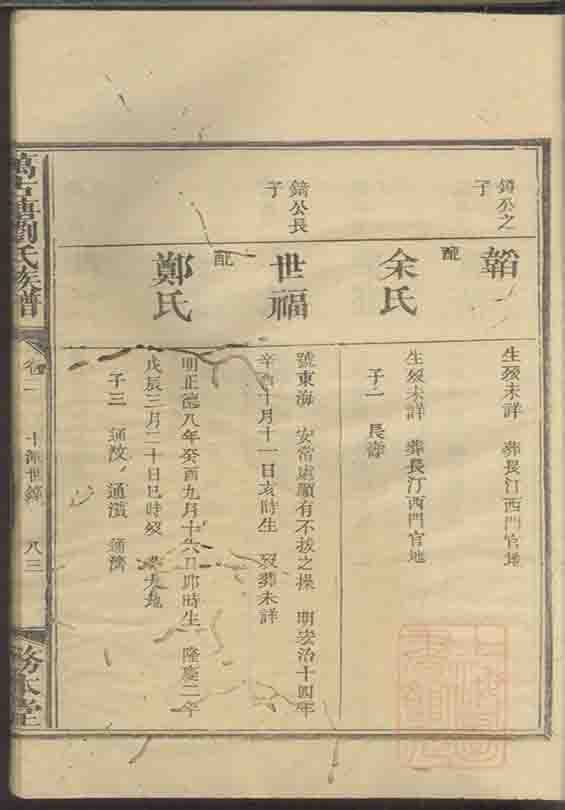 鑄公之
子
韜
生歿未詳 葬長汀西門官地
配
余氏
生歿未詳 葬長汀西門官地
子一 長壽
錡公長
子
世福
號東海 安常處順有不拔之操 明宏治十四年
辛酉十月十一日亥時生 歿葬未詳
配
鄭氏
明正德八年癸酉九月十六日卯時生 隆慶二年
戊辰三月二十日巳時歿
子三 通 通 通濟
劉氏族譜
卷二
世錄
八三
務本堂